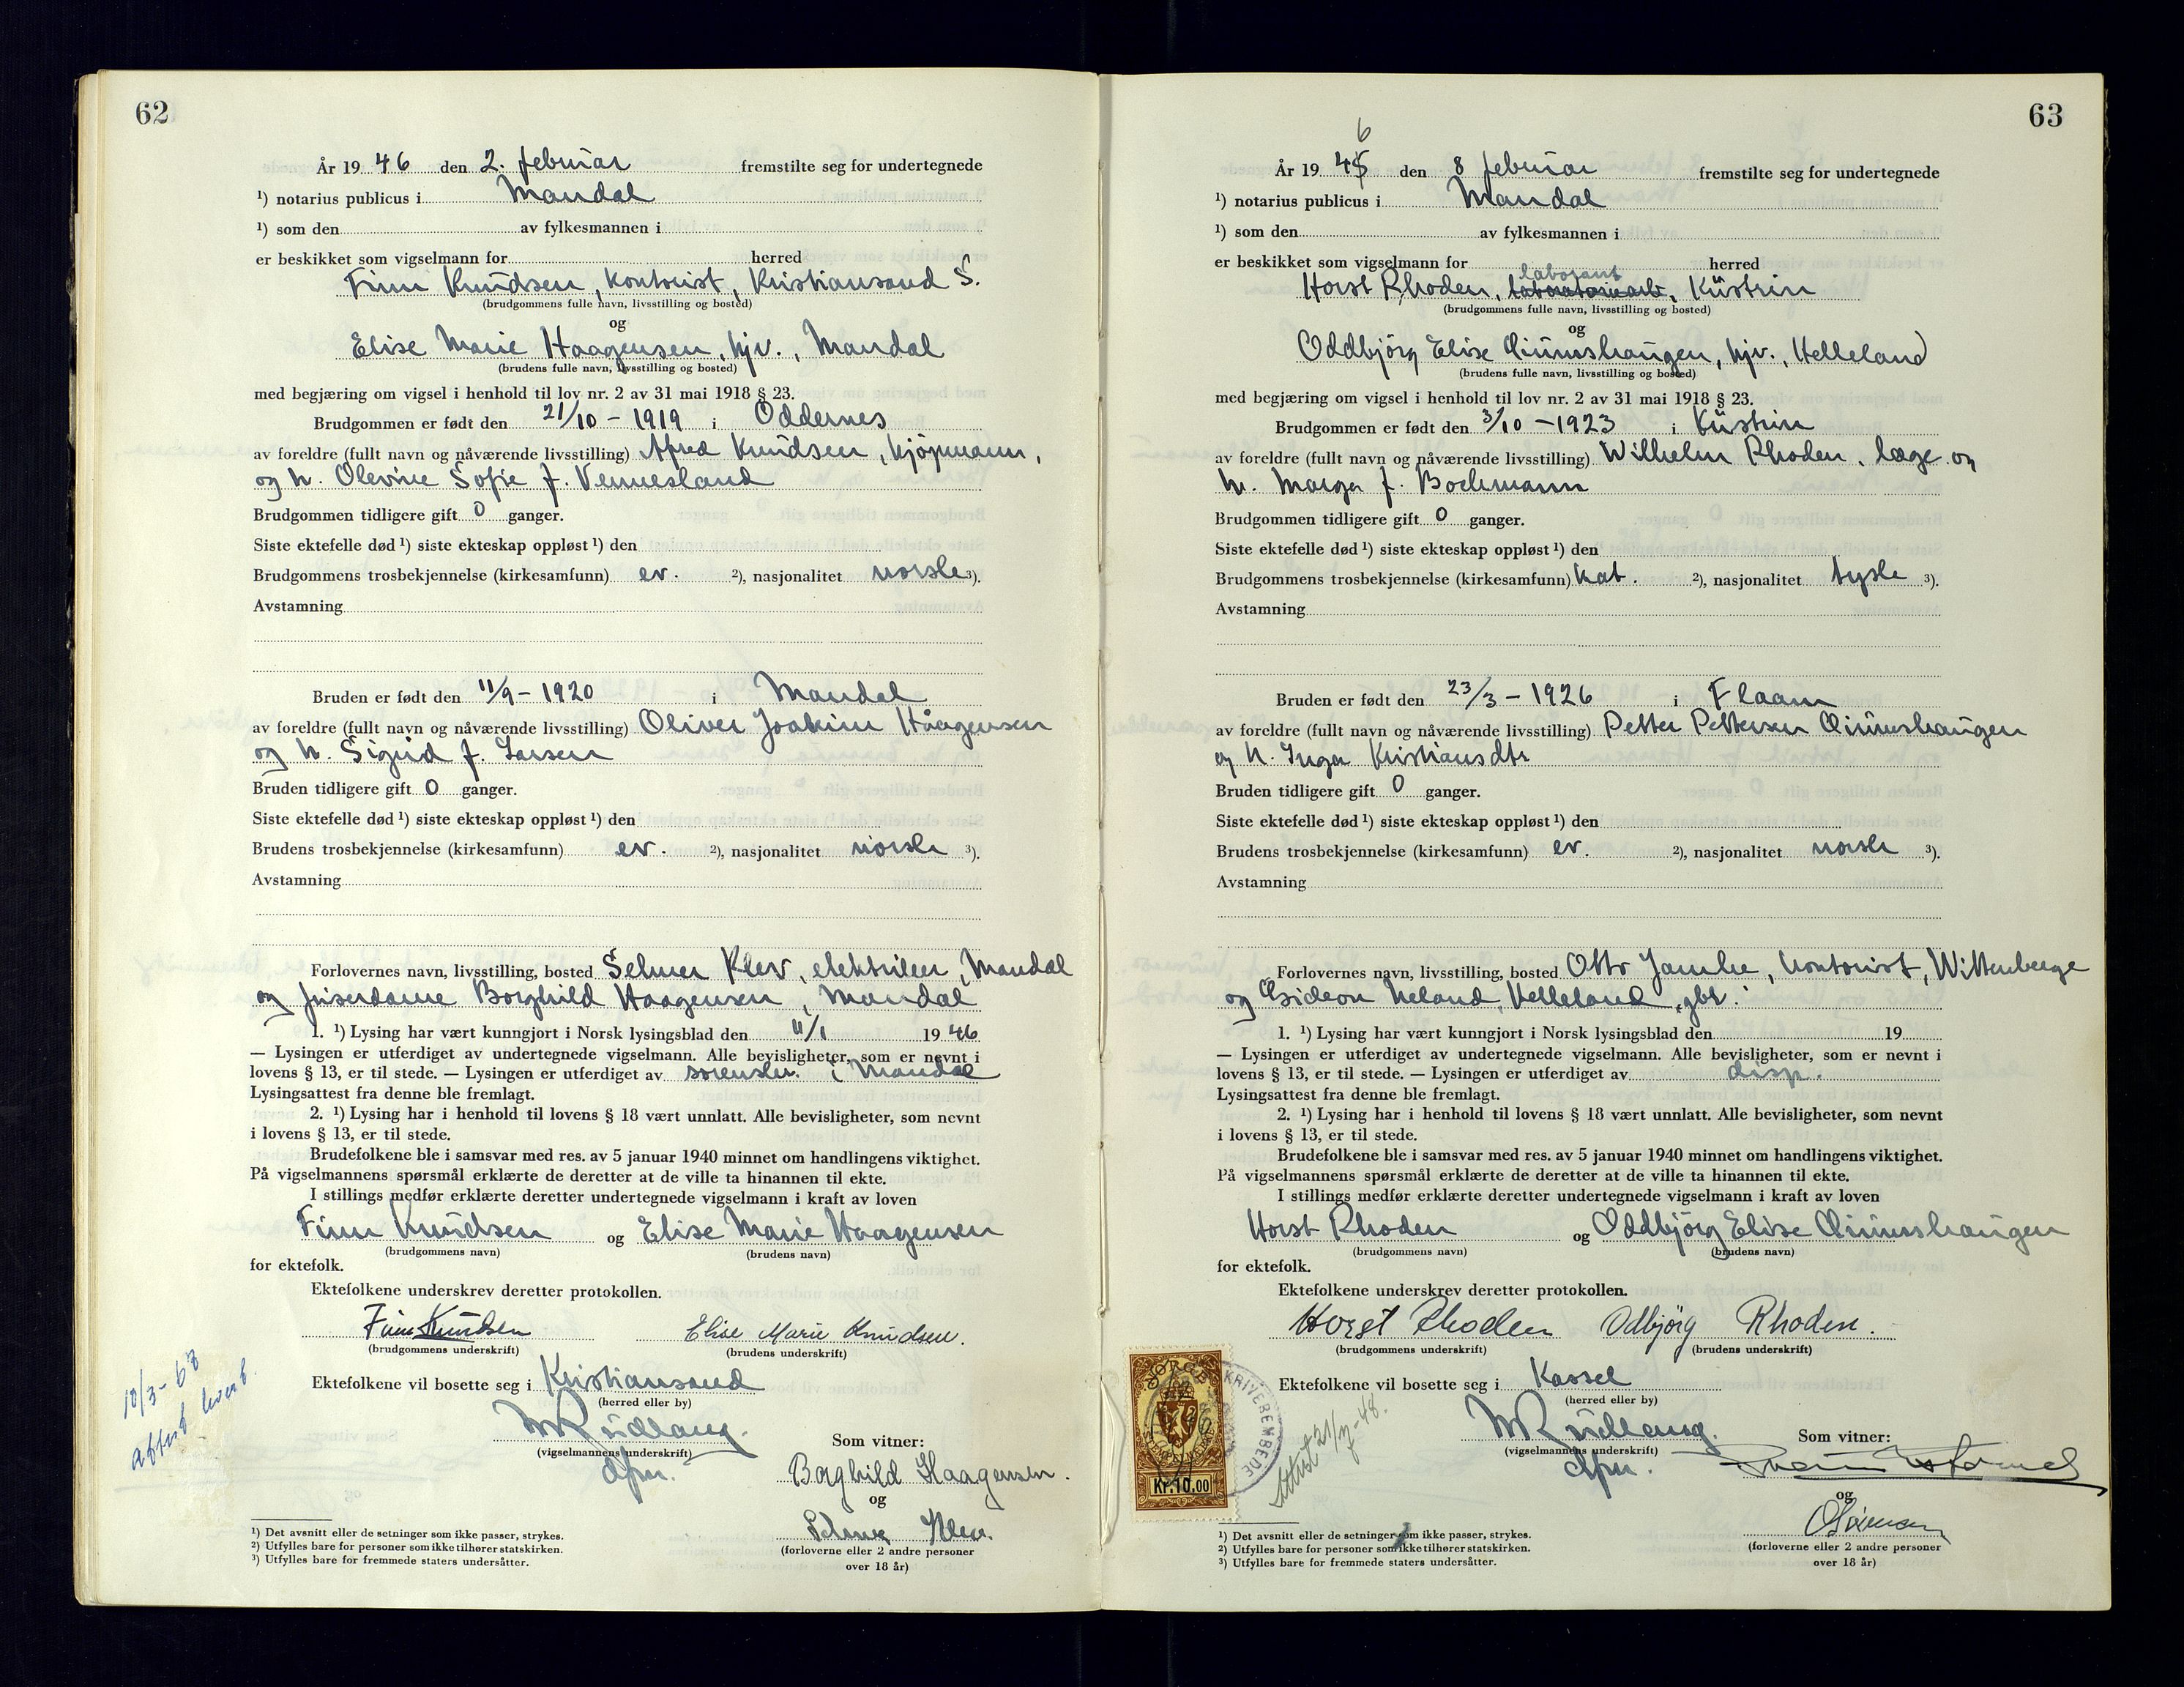 62
År 19 46 den 2. februar fremstilte seg for undertegnede
¹) notarius publicus i Mandal
¹) som den av fylkesmannen i
er beskikket som vigselmann for herred
Finn Knudsen, kontorist, Kristiansand S.
(brudgommens fulle navn, livsstilling og bosted)
og
Elise Marie Haagensen, hjv., Mandal
(brudens fulle navn, livsstilling og bosted)
med begjæring om vigsel i henhold til lov nr. 2 av 31 mai 1918 § 23.
Brudgommen er født den 21/10 - 1919 i Oddernes
av foreldre (fullt navn og nåværende livsstilling) Alfred Knudsen, kjöpmann,
og h. Olevine Sofie f. Vennesland
Brudgommen tidligere gift 0 ganger.
Siste ektefelle død ¹) siste ekteskap oppløst ¹) den
Brudgommens trosbekjennelse (kirkesamfunn) ev. ²), nasjonalitet norsk ³).
Avstamning
Bruden er født den 11/9 - 1920 i Mandal
av foreldre (fullt navn og nåværende livsstilling) Oliver Joakim Håagensen
og h. Sigrid f. Larsen
Bruden tidligere gift 0 ganger.
Siste ektefelle død ¹) siste ekteskap oppløst ¹) den
Brudens trosbekjennelse (kirkesamfunn) ev. ²), nasjonalitet norsk ³).
Avstamning
Forlovernes navn, livsstilling, bosted Selmer Klev, elektriker, Mandal
og friserdame Borghild Haagensen, Mandal
1. ¹) Lysing har vært kunngjort i Norsk lysingsblad den 11/1 19 46
— Lysingen er utferdiget av undertegnede vigselmann. Alle bevisligheter, som er nevnt i
lovens § 13, er til stede. — Lysingen er utferdiget av sorenskr. i Mandal
Lysingsattest fra denne ble fremlagt.
2. ¹) Lysing har i henhold til lovens § 18 vært unnlatt. Alle bevisligheter, som nevnt
i lovens § 13, er til stede.
Brudefolkene ble i samsvar med res. av 5 januar 1940 minnet om handlingens viktighet.
På vigselmannens spørsmål erklærte de deretter at de ville ta hinannen til ekte.
I stillings medfør erklærte deretter undertegnede vigselmann i kraft av loven
Finn Knudsen og Elise Marie Haagensen
(brudgommens navn) (brudens navn)
for ektefolk.
Ektefolkene underskrev deretter protokollen.
Finn Knudsen Elise Marie Knudsen.
(brudgommens underskrift) (brudens underskrift)
Ektefolkene vil bosette seg i Kristiansand
(herred eller by)
(vigselmannens underskrift) Som vitner:
dfm.
Borghild Haagensen.
og
Selmer Klev.
(forloverne eller 2 andre personer
over 18 år)
10/3-68
¹) Det avsnitt eller de setninger som ikke passer, strykes.
²) Utfylles bare for personer som ikke tilhører statskirken.
³) Utfylles bare for fremmede staters undersåtter.
63
6
År 19 45 den 8 februar fremstilte seg for undertegnede
¹) notarius publicus i Mandal
¹) som den av fylkesmannen i
er beskikket som vigselmann for herred
laborant
Horst Rhoden, laboratoriearb., Küstrin
(brudgommens fulle navn, livsstilling og bosted)
og
Oddbjörg Elise Qvinnshaugen, hjv., Helleland
(brudens fulle navn, livsstilling og bosted)
med begjæring om vigsel i henhold til lov nr. 2 av 31 mai 1918 § 23.
Brudgommen er født den 3/10 - 1923 i Küstrin
av foreldre (fullt navn og nåværende livsstilling) Wilhelm Rhoden, læge og
h. Marga f. Boekmann
Brudgommen tidligere gift 0 ganger.
Siste ektefelle død ¹) siste ekteskap oppløst ¹) den
Brudgommens trosbekjennelse (kirkesamfunn) kat. ²), nasjonalitet tysk ³).
Avstamning
Bruden er født den 23/3 - 1926 i Flaam
av foreldre (fullt navn og nåværende livsstilling) Petter Pettersen Qvinnshaugen
og h. Inga Kristiansdtr
Bruden tidligere gift 0 ganger.
Siste ektefelle død ¹) siste ekteskap oppløst ¹) den
Brudens trosbekjennelse (kirkesamfunn) ev. ²), nasjonalitet norsk ³).
Avstamning
Forlovernes navn, livsstilling, bosted Otto Jamke, kontorist, Wittenberge
og Gideon Neland, Helleland, gbr.
1. ¹) Lysing har vært kunngjort i Norsk lysingsblad den 19
— Lysingen er utferdiget av undertegnede vigselmann. Alle bevisligheter, som er nevnt i
lovens § 13, er til stede. — Lysingen er utferdiget av disp.
Lysingsattest fra denne ble fremlagt.
2. ¹) Lysing har i henhold til lovens § 18 vært unnlatt. Alle bevisligheter, som nevnt
i lovens § 13, er til stede.
Brudefolkene ble i samsvar med res. av 5 januar 1940 minnet om handlingens viktighet.
På vigselmannens spørsmål erklærte de deretter at de ville ta hinannen til ekte.
I stillings medfør erklærte deretter undertegnede vigselmann i kraft av loven
Horst Rhoden og Oddbjörg Elise Qvinnshaugen
(brudgommens navn) (brudens navn)
for ektefolk.
Ektefolkene underskrev deretter protokollen.
Horst Rhoden Odbjörg Rhoden.
(brudgommens underskrift) (brudens underskrift)
Ektefolkene vil bosette seg i Kassel
(herred eller by)
(vigselmannens underskrift) Som vitner:
dfm.
og
(forloverne eller 2 andre personer
over 18 år)
NORGE
Kr.10.00
Attest 21/7-48.
¹) Det avsnitt eller de setninger som ikke passer, strykes.
²) Utfylles bare for personer som ikke tilhører statskirken.
³) Utfylles bare for fremmede staters undersåtter.